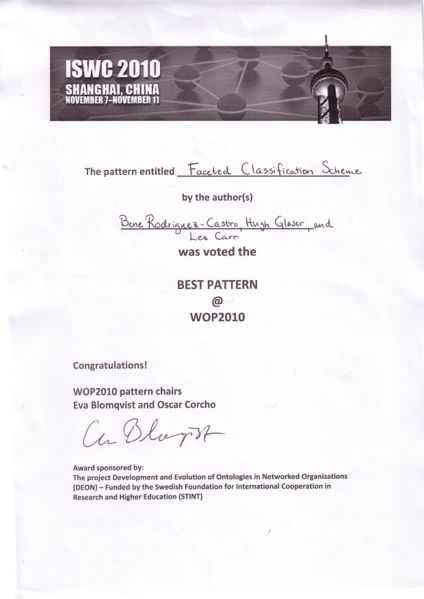 ISWC 2010
SHANGHAI, CHINA
NOVEMBER 7–NOVEMBER 11
The pattern entitled Faceted Classification Scheme
by the author(s)
Bene Rodriguez-Castro, Hugh Glaser, and
Les Carr
was voted the
BEST PATTERN
@
WOP2010
Congratulations!
WOP2010 pattern chairs
Eva Blomqvist and Oscar Corcho
Award sponsored by:
The project Development and Evolution of Ontologies in Networked Organizations
(DEON) – Funded by the Swedish Foundation for International Cooperation in
Research and Higher Education (STINT)